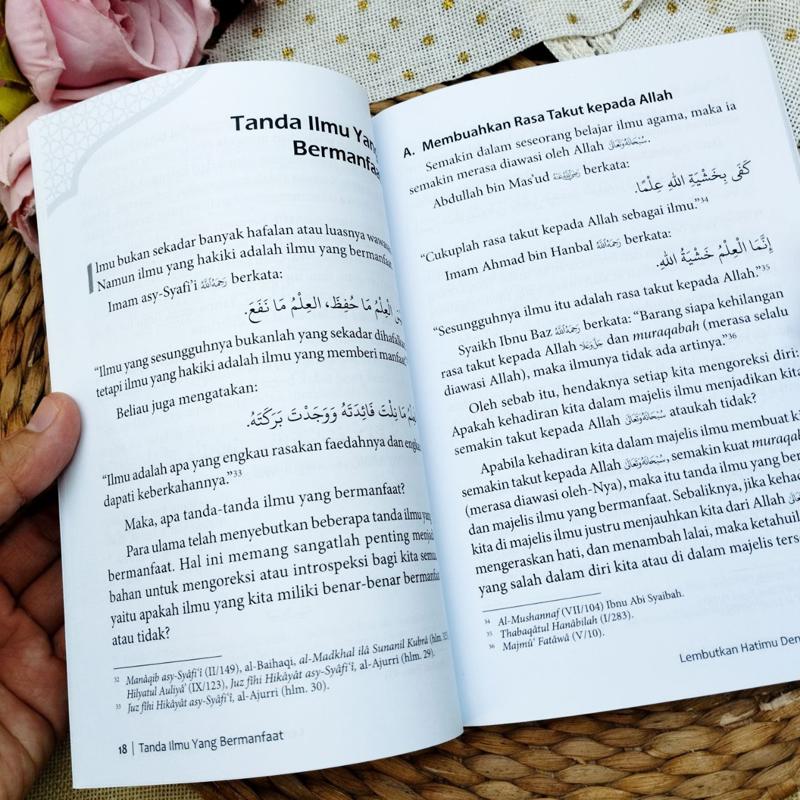 Tanda Ilmu Yang
Bermanfaat
Ilmu bukan sekadar banyak hafalan atau luasnya wawasan.
Namun ilmu yang hakiki adalah ilmu yang bermanfaat.
Imam asy-Syafi'i رَحِمَهُ اللَّهُ berkata:
الْعِلْمُ مَا حُفِظَ، الْعِلْمُ مَا نَفَعَ.
"Ilmu yang sesungguhnya bukanlah yang sekadar dihafalkan
tetapi ilmu yang hakiki adalah ilmu yang memberi manfaat."
Beliau juga mengatakan:
مَا نِلْتَ فَائِدَتَهُ وَوَجَدْتَ بَرَكَتَهُ.
"Ilmu adalah apa yang engkau rasakan faedahnya dan engkau
dapati keberkahannya."33
Maka, apa tanda-tanda ilmu yang bermanfaat?
Para ulama telah menyebutkan beberapa tanda ilmu yang
bermanfaat. Hal ini memang sangatlah penting menjadi
bahan untuk mengoreksi atau introspeksi bagi kita semua
yaitu apakah ilmu yang kita miliki benar-benar bermanfaat
atau tidak?
32 Manâqib asy-Syâfi'î (II/149), al-Baihaqi, al-Madkhal ilâ Sunanil Kubrâ (hlm.
Hilyatul Auliyâ' (IX/123), Juz fîhi Hikâyât asy-Syâfi'î, al-Ajurri (hlm. 29).
33 Juz fîhi Hikâyât asy-Syâfi'î, al-Ajurri (hlm. 30).
18 | Tanda Ilmu Yang Bermanfaat
A. Membuahkan Rasa Takut kepada Allah
Semakin dalam seseorang belajar ilmu agama, maka ia
semakin merasa diawasi oleh Allah سُبْحَانَهُ وَتَعَالَى.
Abdullah bin Mas'ud رَضِيَ اللَّهُ عَنْهُ berkata:
كَفَى بِخَشْيَةِ اللهِ عِلْمًا.
"Cukuplah rasa takut kepada Allah sebagai ilmu."34
Imam Ahmad bin Hanbal رَحِمَهُ اللَّهُ berkata:
إِنَّمَا الْعِلْمُ خَشْيَةُ اللهِ.
"Sesungguhnya ilmu itu adalah rasa takut kepada Allah."35
Syaikh Ibnu Baz رَحِمَهُ اللَّهُ berkata: "Barang siapa kehilangan
rasa takut kepada Allah جَلَّ وَعَلَا dan muraqabah (merasa selalu
diawasi Allah), maka ilmunya tidak ada artinya."36
Oleh sebab itu, hendaknya setiap kita mengoreksi diri:
Apakah kehadiran kita dalam majelis ilmu menjadikan kita
semakin takut kepada Allah سُبْحَانَهُ وَتَعَالَى ataukah tidak?
Apabila kehadiran kita dalam majelis ilmu membuat kita
semakin takut kepada Allah سُبْحَانَهُ وَتَعَالَى, semakin kuat muraqabah
(merasa diawasi oleh-Nya), maka itu tanda ilmu yang
dan majelis ilmu yang bermanfaat. Sebaliknya, jika
kita di majelis ilmu justru menjauhkan kita dari Allah
mengeraskan hati, dan menambah lalai, maka
yang salah dalam diri kita atau di dalam majelis
34 Al-Mushannaf (VII/104) Ibnu Abi Syaibah.
35 Thabaqâtul Hanâbilah (I/283).
36 Majmû' Fatâwâ (V/10).
Lembutkan Hatimu